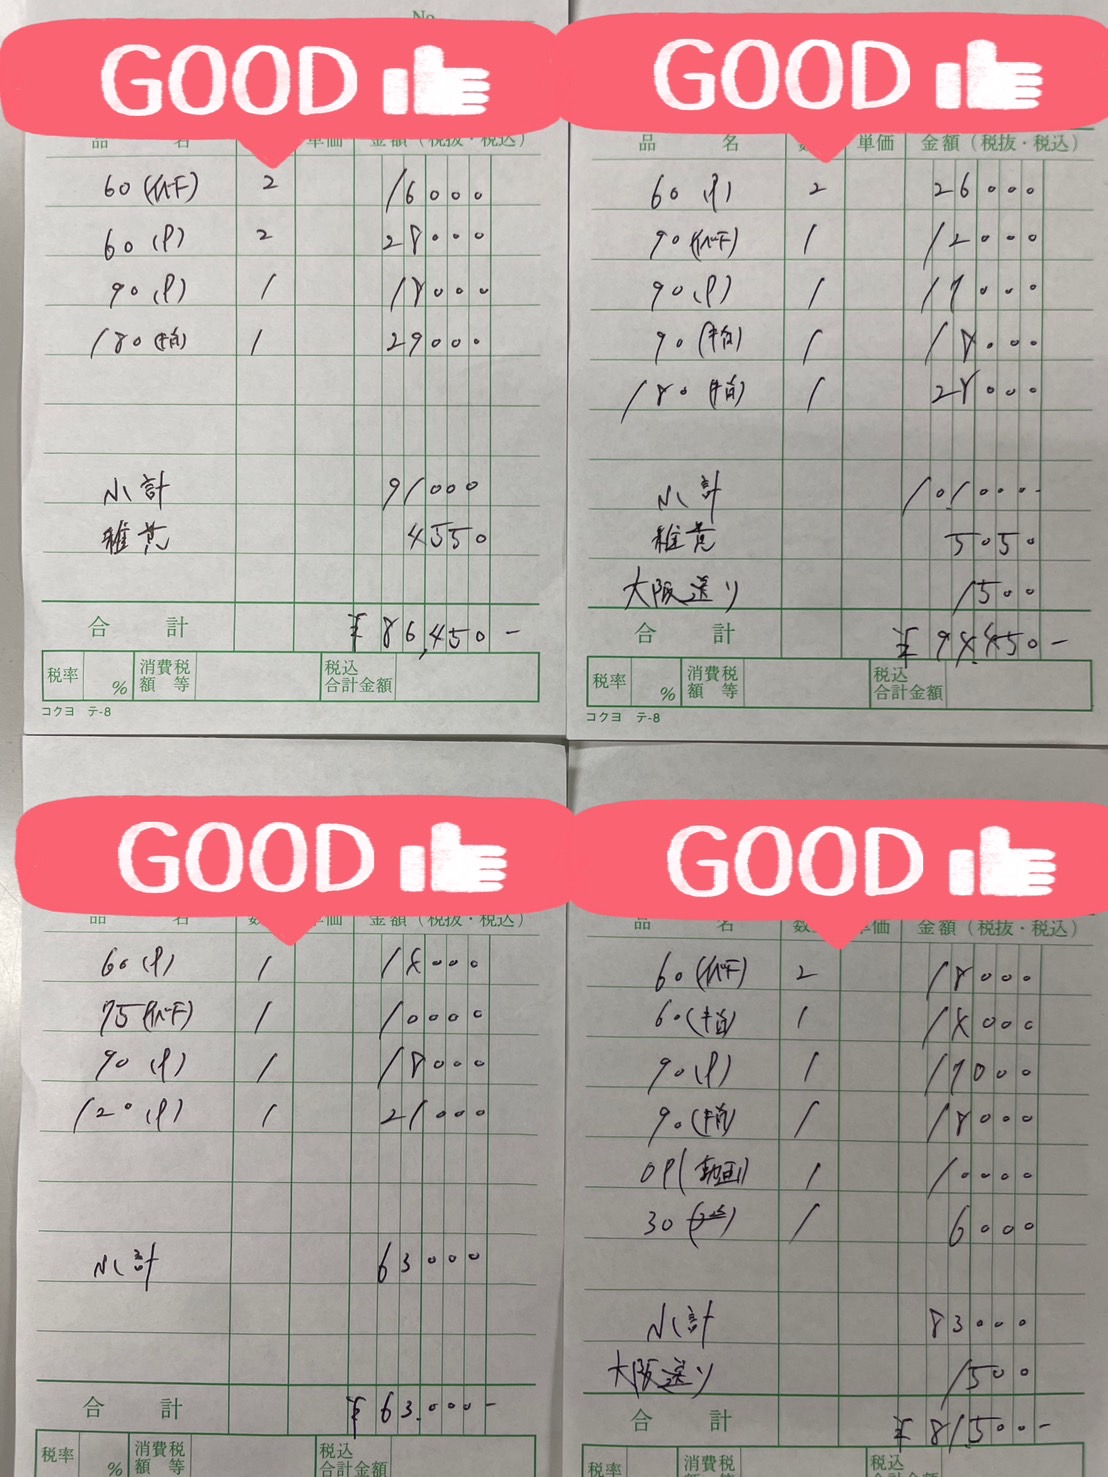 No.
GOOD
品 名 単価 金額（税抜・税込）
60 (イベント) 2 16000
60 (P) 2 28000
90 (P) 1 18000
180 (指) 1 29000
小計 91000
雑費 4550
合計 ¥86,450-
税率 % 消費税額等 税込合計金額
コクヨ テ-8
GOOD
品 名 数 単価 金額（税抜・税込）
60 (P) 2 26000
90 (イベント) 1 12000
90 (P) 1 17000
90 (指) 1 18000
180 (指) 1 28000
小計 101000-
雑費 5050
大阪送り 1500
合計 ¥94,450-
税率 % 消費税額等 税込合計金額
コクヨ テ-8
GOOD
品 名 数 単価 金額（税抜・税込）
60 (P) 1 14000
75 (イベント) 1 10000
90 (P) 1 18000
120 (P) 1 21000
小計 63000
合計 ¥63,000-
税率 % 消費税額等 税込合計金額
GOOD
品 名 数 単価 金額（税抜・税込）
60 (イベント) 2 18000
60 (指) 1 14000
90 (P) 1 17000
90 (指) 1 18000
OP (動画) 1 10000
30 1 6000
小計 83000
大阪送り 1500
合計 ¥81500-
税率 % 消費税額等 税込合計金額